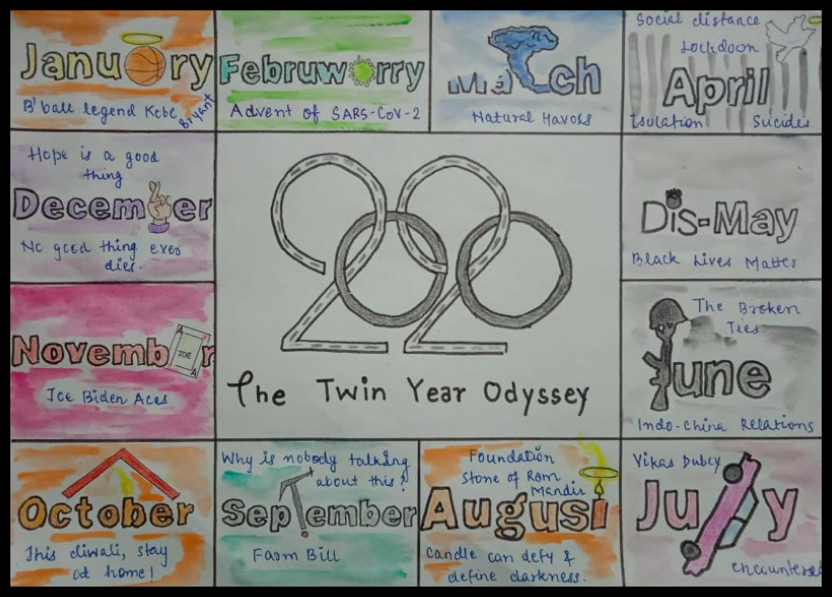 January
B'ball legend Kobe Bryant
Februworry
Advent of SARS-CoV-2
March
Natural Havoks
Social distance
Lockdown
April
Isolation Suicides
Hope is a good
thing
December
No good thing ever
dies.
2020
The Twin Year Odyssey
Dis-May
Black Lives Matter
November
A JOE A
Joe Biden Aces
The Broken
Ties
June
Indo-China Relations
October
This diwali, stay
at home!
Why is nobody talking
about this?
September
Farm Bill
Foundation
Stone of Ram
Mandir
August
Candle can defy &
define darkness.
Vikas Dubey
July
encountered